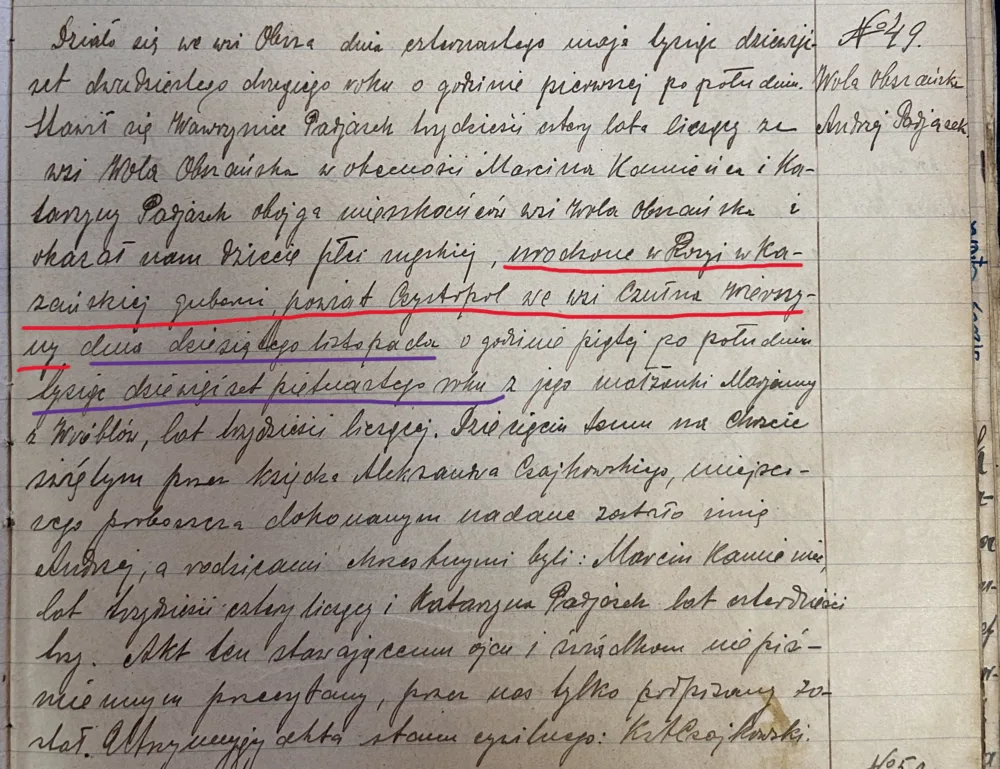 Działo się we wsi Obsza dnia czternastego maja tysiąc dziewięć-
set dwudziestego drugiego roku o godzinie pierwszej po południu.
Stawił się Wawrzyniec Padjasek trzydzieści cztery lata liczący ze
wsi Wola Obszańska w obecności Marcina Kamieńca i Ka-
tarzyny Padjasek obojga mieszkańców wsi Wola Obszańska i
okazał nam dziecię płci męskiej, urodzone w Rosyi w Ka-
zańskiej guberni, powiat Czystopol we wsi
dnia dziesiątego listopada o godzinie piątej po południu
tysiąc dziewięćset piętnastego roku z jego małżonki Marjanny
z Wróblów, lat trzydzieści liczącej. Dziecięciu temu na Chrzcie
świętym przez księdza Aleksandra Czajkowskiego, miejsco-
wego proboszcza dokonanym nadane zostało imię
Andrzej, a rodzicami chrzestnymi byli: Marcin Kamieniec,
lat trzydzieści cztery liczący i Katarzyna Padjasek lat czterdzieści
trzy. Akt ten stawającemu ojcu i świadkom niepiś-
miennym przeczytany, przez nas tylko podpisany zo-
stał. Utrzymujący akta stanu cywilnego: Czajkowski.
№49.
Wola Obszańska
Andrzej Padjasek